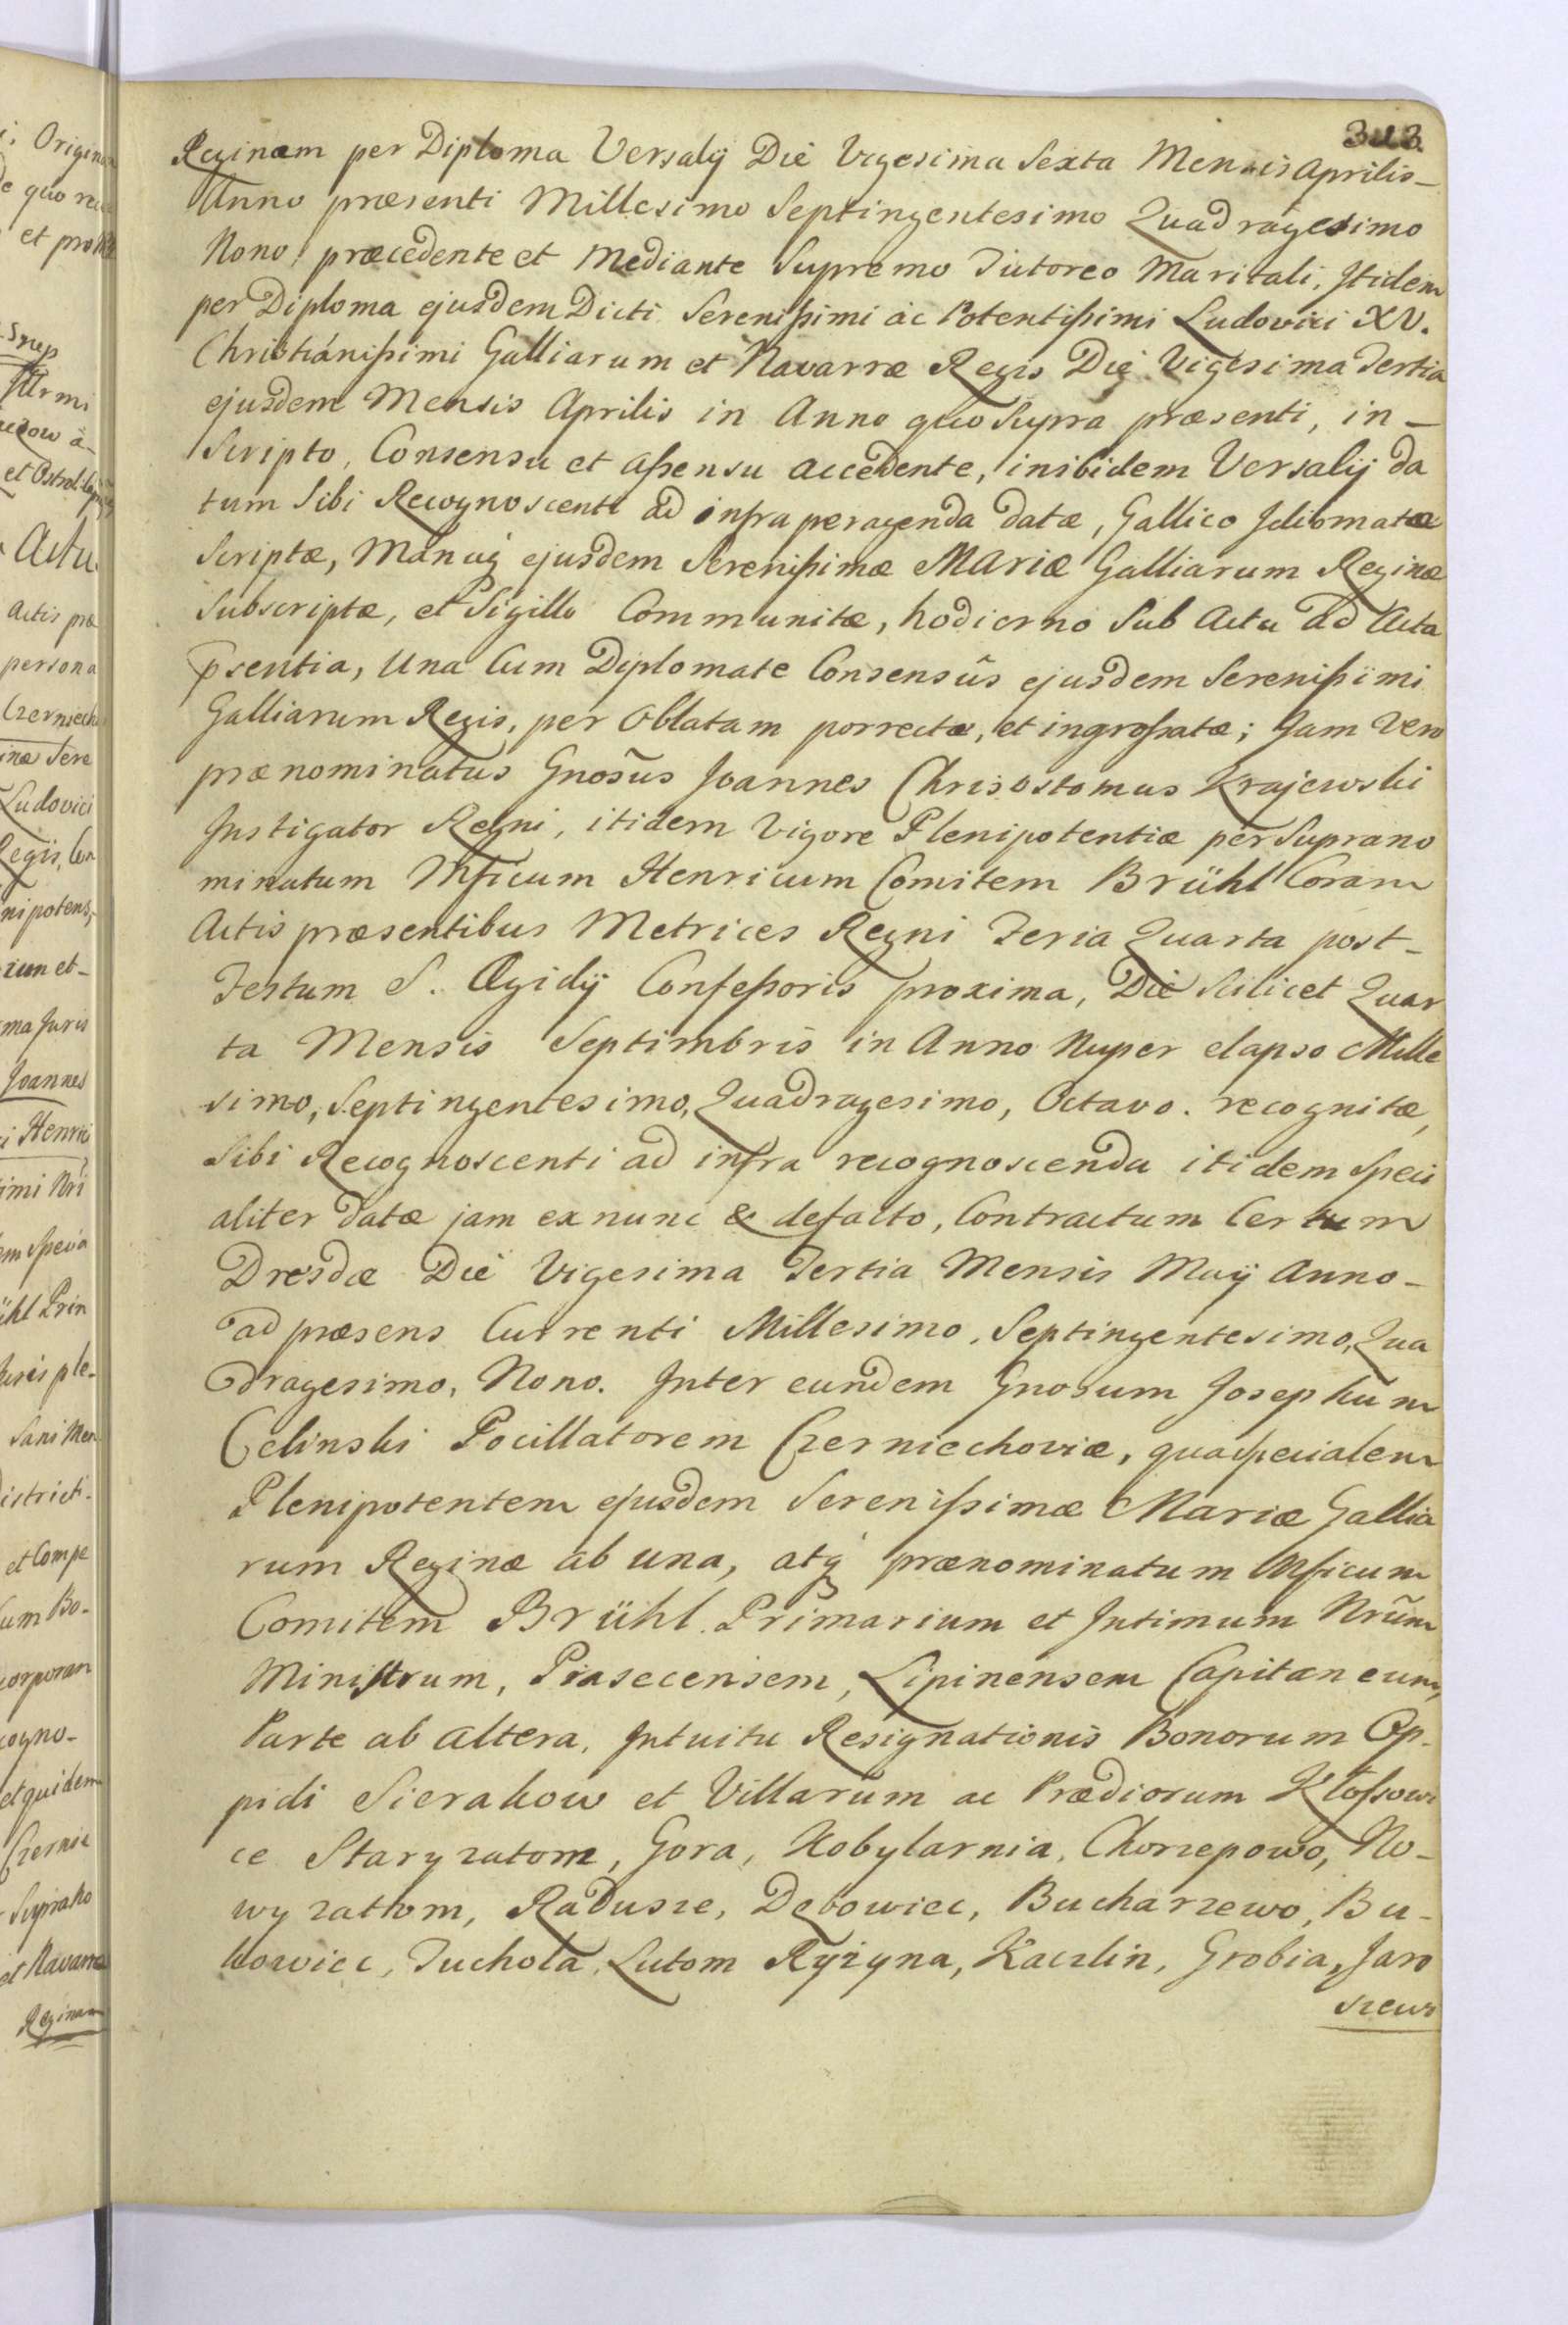 343.
Reginam per Diploma Versalij Die Vigesima Sexta Mensis Aprilis
Anno præsenti Millesimo Septingentesimo Quadragesimo
Nono, præcedente et Mediante Supremo Tutoreo Maritali, Itidem
per Diploma ejusdem Dicti Serenissimi ac Potentissimi Ludovici XV.
Christianissimi Galliarum et Navarræ Regis Die Vigesima Tertia
ejusdem Mensis Aprilis in Anno quo Supra præsenti, in-
Scripto, Consensu et assensu accedente, inibidem Versalij da
tum Sibi Recognoscenti ad infra peragenda datæ, Gallico Idiomatæ
Scriptæ, Manuq ejusdem Serenissimæ Mariæ Galliarum Reginæ
Subscriptæ, et Sigillo Communitæ, hodierno Sub Actu ad Acta
psentia, Una Cum Diplomate Consensûs ejusdem Serenissimi
Galliarum Regis, per Oblatam porrectæ, et ingrossatæ; Jam Vero
prænominatus Gnosũs Joannes Chrisostomus Krajewski
Instigator Regni, itidem Vigore Plenipotentiæ per Suprano
minatum Mficum Henricum Comitem Brühl Coram
Actis præsentibus Metrices Regni Feria Quarta post-
Festum S. Ægidij Confessoris proxima, Die Scilicet Quar
ta Mensis Septimbris in Anno Nuper elapso Mille
simo, Septingentesimo, Quadragesimo, Octavo. recognitæ,
Sibi Recognoscenti ad infra recognoscenda itidem Speci
aliter datæ jam exnunc & defacto, Contractum Certum
Dresdæ Die Vigesima Tertia Mensis Maij Anno-
ad præsens Currenti Millesimo, Septingentesimo, Qua
dragesimo, Nono. Inter eundem Gnosum Josephum
Celinski Pocillatorem Czerniechoviæ, qua specialem
Plenipotentem ejusdem Serenissimæ Mariæ Gallia
rum Reginæ ab una, atq prænominatum Mficum
Comitem Brühl Primarium et Intimum Nrũm
Ministrum, Piasecensem, Lipinensem Capitaneum,
Parte ab altera, Intuitu Resignationis Bonorum Op-
pidi Sierakow et Villarum ac Prædiorum Kłossowi
ce Staryzatom, Gora, Kobylarnia, Chorzepowo, No-
wy zattom, Radusze, Debowiec, Bucharzewo, Bu-
kowiec, Tuchola, Lutom Ryżyna, Kaczlin, Grobia, Jaro
szewo